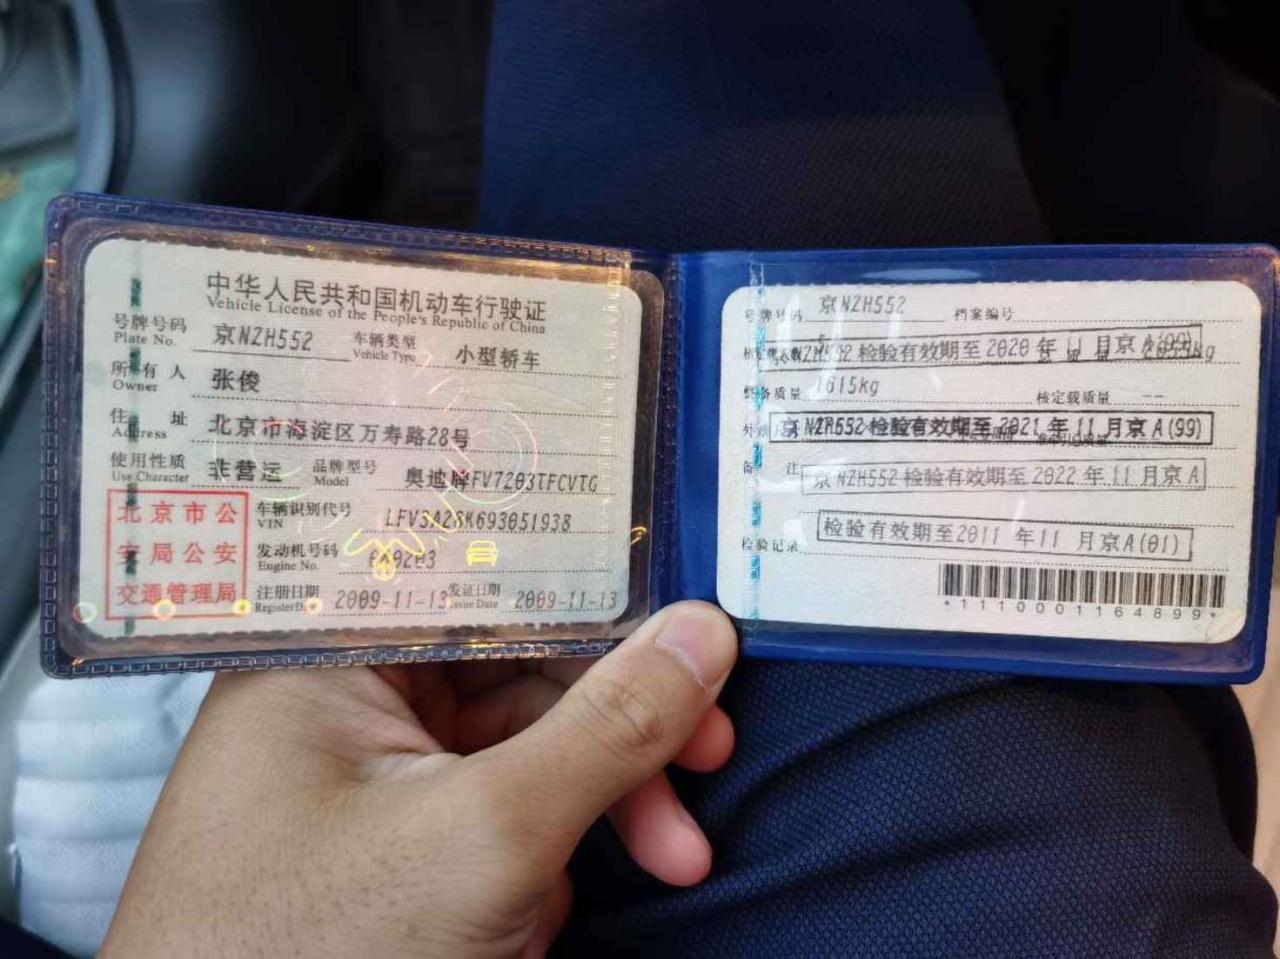 中华人民共和国机动车行驶证
Vehicle License of the People's Republic of China
号牌号码 京NZH552 车辆类型 小型轿车
Plate No. Vehicle Type
所有人 张俊
Owner
住址 北京市海淀区万寿路28号
Address
使用性质 非营运 品牌型号 奥迪牌FV7203TFCVTG
Use Character Model
北京市公
安局公安
交通管理局
车辆识别代号 LFV3A28K693051938
VIN
发动机号码
Engine No.
注册日期 2009-11-13 发证日期 2009-11-13
Register Date Issue Date
号牌号码 京NZH552 档案编号
京NZH552 检验有效期至 2020 年 11 月京 A(99)
整备质量 1615kg 核定载质量 --
京 NZH552 检验有效期至 2021 年 11 月京 A(99)
备注
京 NZH552 检验有效期至 2022 年 11 月京 A
检验有效期至2011 年11 月京A(01)
检验记录
*1110001164899*